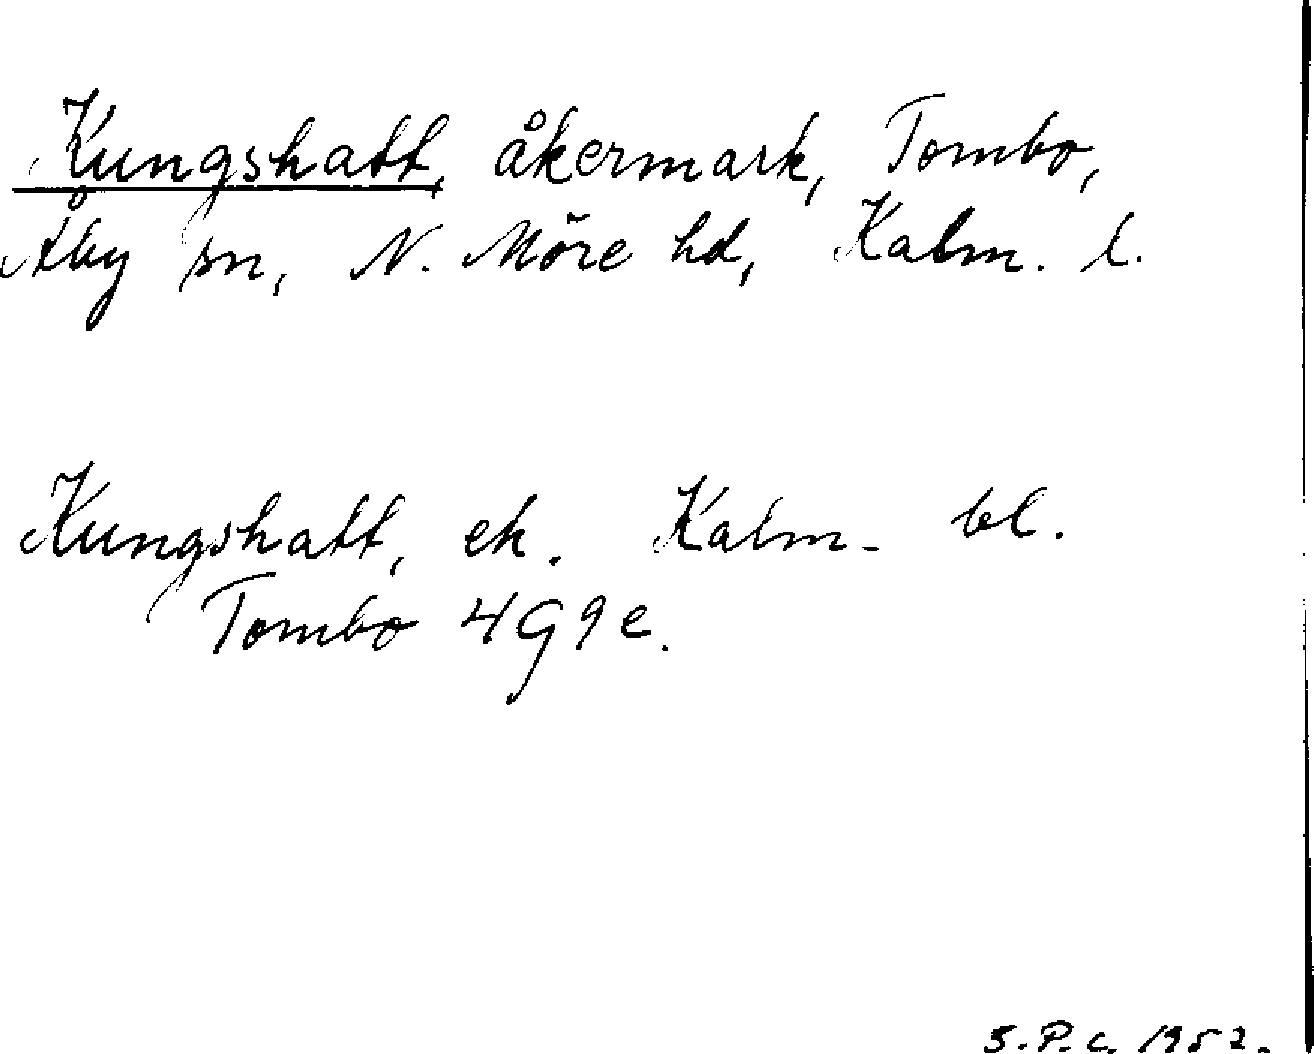 Kungshatt, åkermark, Tombo,
Åby sn, N. Möre hd, Kalm. l.
Kungshatt, ek. Kalm. bl.
Tombo 4G9e.
S.P.C. 1952.